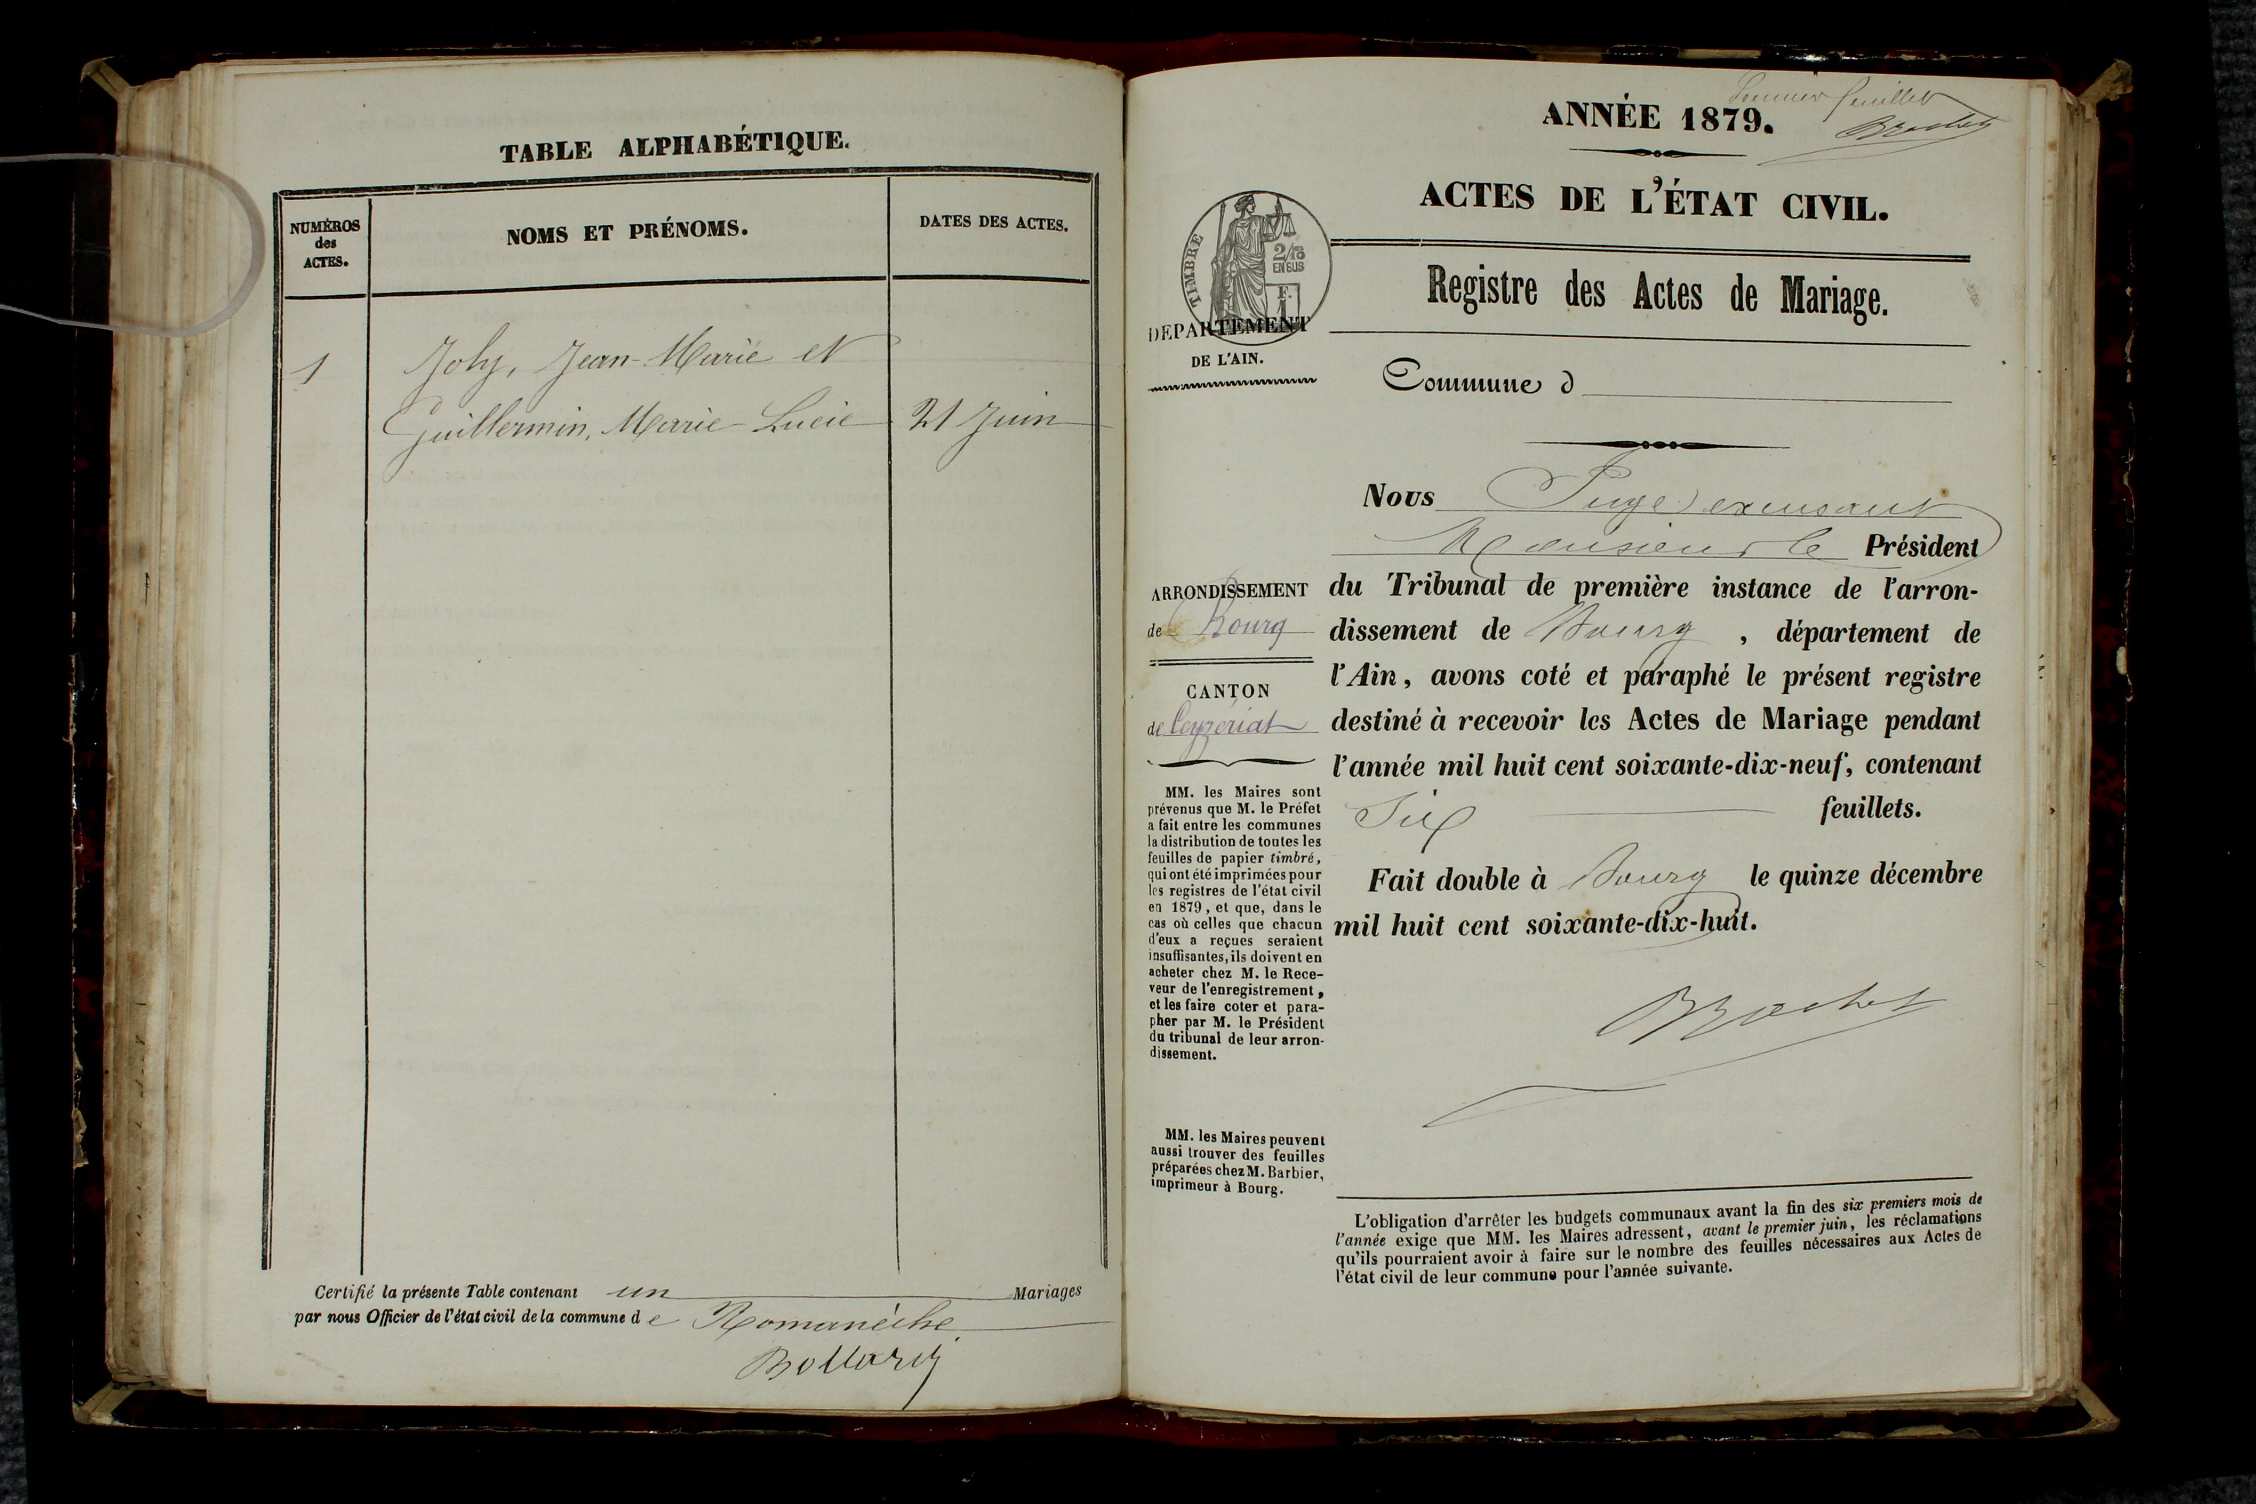 TABLE ALPHABÉTIQUE.
NUMÉROS
des
ACTES.
NOMS ET PRÉNOMS.
DATES DES ACTES.
1
Joly, Jean-Marie et
Guillermin, Marie Lucie
21 Juin
Certifié la présente Table contenant un Mariages
par nous Officier de l'état civil de la commune de Romanèche
ANNÉE 1879.
Premier feuillet
ACTES DE L'ÉTAT CIVIL.
TIMBRE
2/10
EN SUS
Registre des Actes de Mariage.
DÉPARTEMENT
DE L'AIN.
Commune d
Nous Juge
Monsieur le Président
du Tribunal de première instance de l'arron-
dissement de Bourg, département de
l'Ain, avons coté et paraphé le présent registre
destiné à recevoir les Actes de Mariage pendant
l'année mil huit cent soixante-dix-neuf, contenant
Six feuillets.
Fait double à Bourg le quinze décembre
mil huit cent soixante-dix-huit.
ARRONDISSEMENT
de Bourg
CANTON
de Ceyzériat
MM. les Maires sont
prévenus que M. le Préfet
a fait entre les communes
la distribution de toutes les
feuilles de papier timbré,
qui ont été imprimées pour
les registres de l'état civil
en 1879, et que, dans le
cas où celles que chacun
d'eux a reçues seraient
insuffisantes, ils doivent en
acheter chez M. le Rece-
veur de l'enregistrement,
et les faire coter et para-
pher par M. le Président
du tribunal de leur arron-
dissement.
MM. les Maires peuvent
aussi trouver des feuilles
préparées chez M. Barbier,
imprimeur à Bourg.
L'obligation d'arrêter les budgets communaux avant la fin des six premiers mois de
l'année exige que MM. les Maires adressent, avant le premier juin, les réclamations
qu'ils pourraient avoir à faire sur le nombre des feuilles nécessaires aux Actes de
l'état civil de leur commune pour l'année suivante.